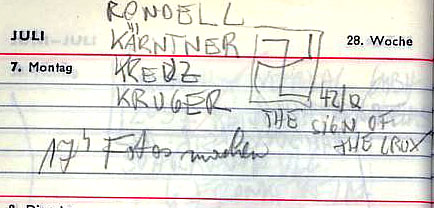 RONDELL
JULI
KÄRNTNER
28. Woche
7. Montag
KREUZ
KRUGER
42/8
THE SIGN OF
THE CRUX
17h Fotos machen